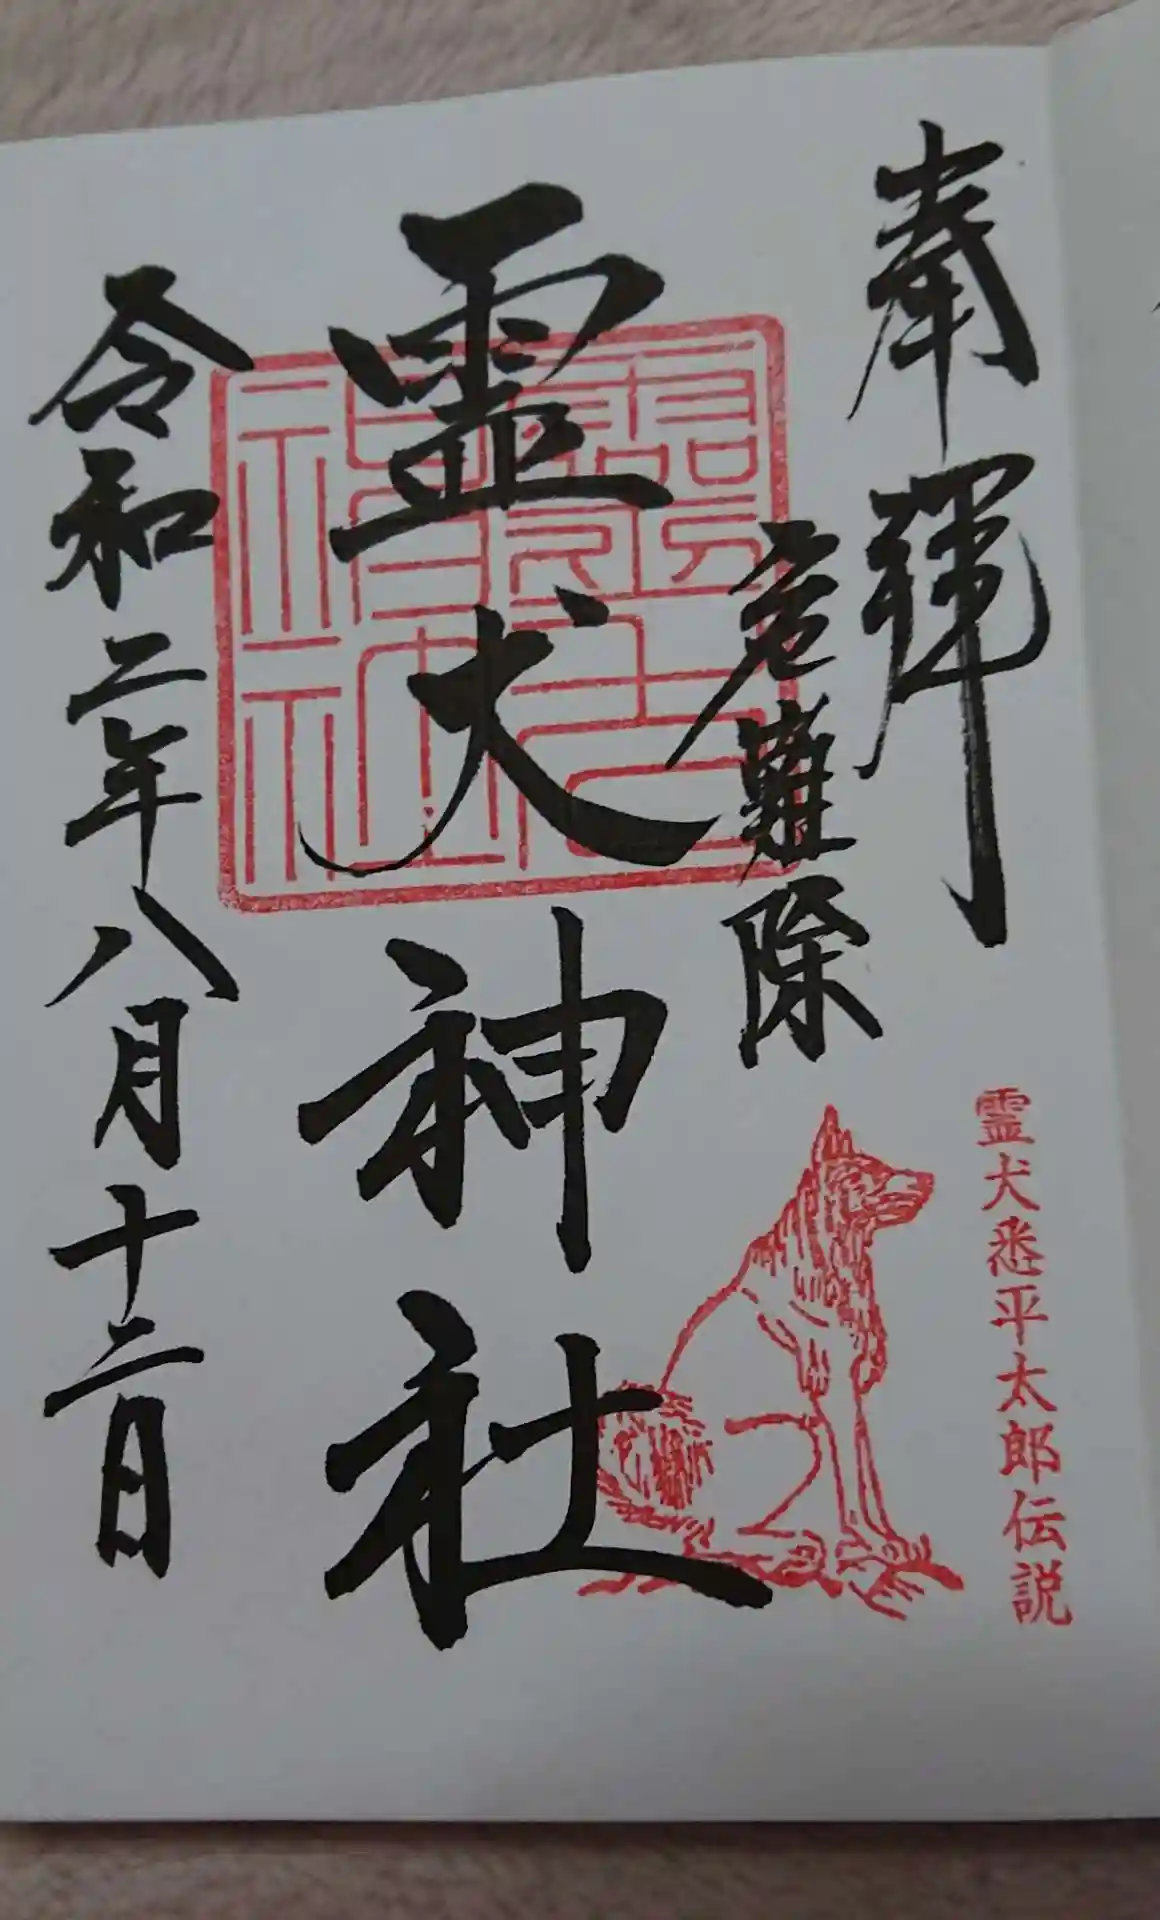 奉拝
危難除
霊犬悉平太郎伝説
霊犬神社
令和二年八月十二日